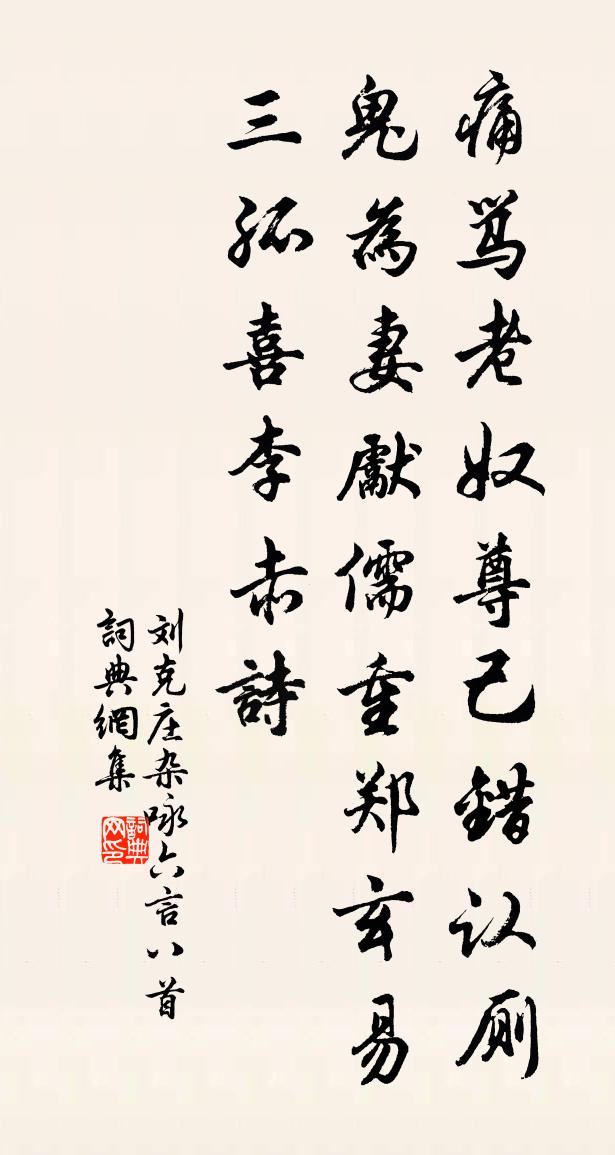 痛骂老奴尊己錯认厠
鬼為妻獻儒重郑玄易
三孤喜李赤詩
刘克庄杂咏六言八首
詞典網集
詞典网印